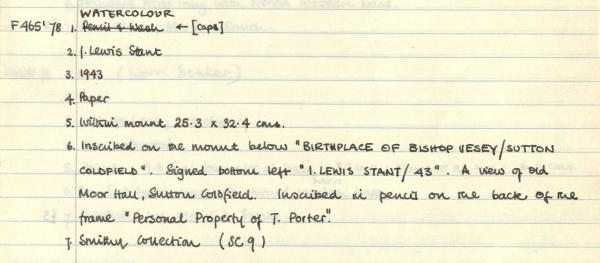 WATERCOLOUR
F465'78 1. Pencil & Wash ← [caps]
2. J. Lewis Stant
3. 1943
4. Paper
5. Within mount 25.3 x 32.4 cms.
6. Inscribed on the mount below "BIRTHPLACE OF BISHOP VESEY/SUTTON
COLDFIELD". Signed bottom left "I. LEWIS STANT/43". A view of Old
Moor Hall, Sutton Coldfield. Inscibed in pencil on the back of the
frame "Personal Property of T. Porter".
7. Smithy Collection (SC9)